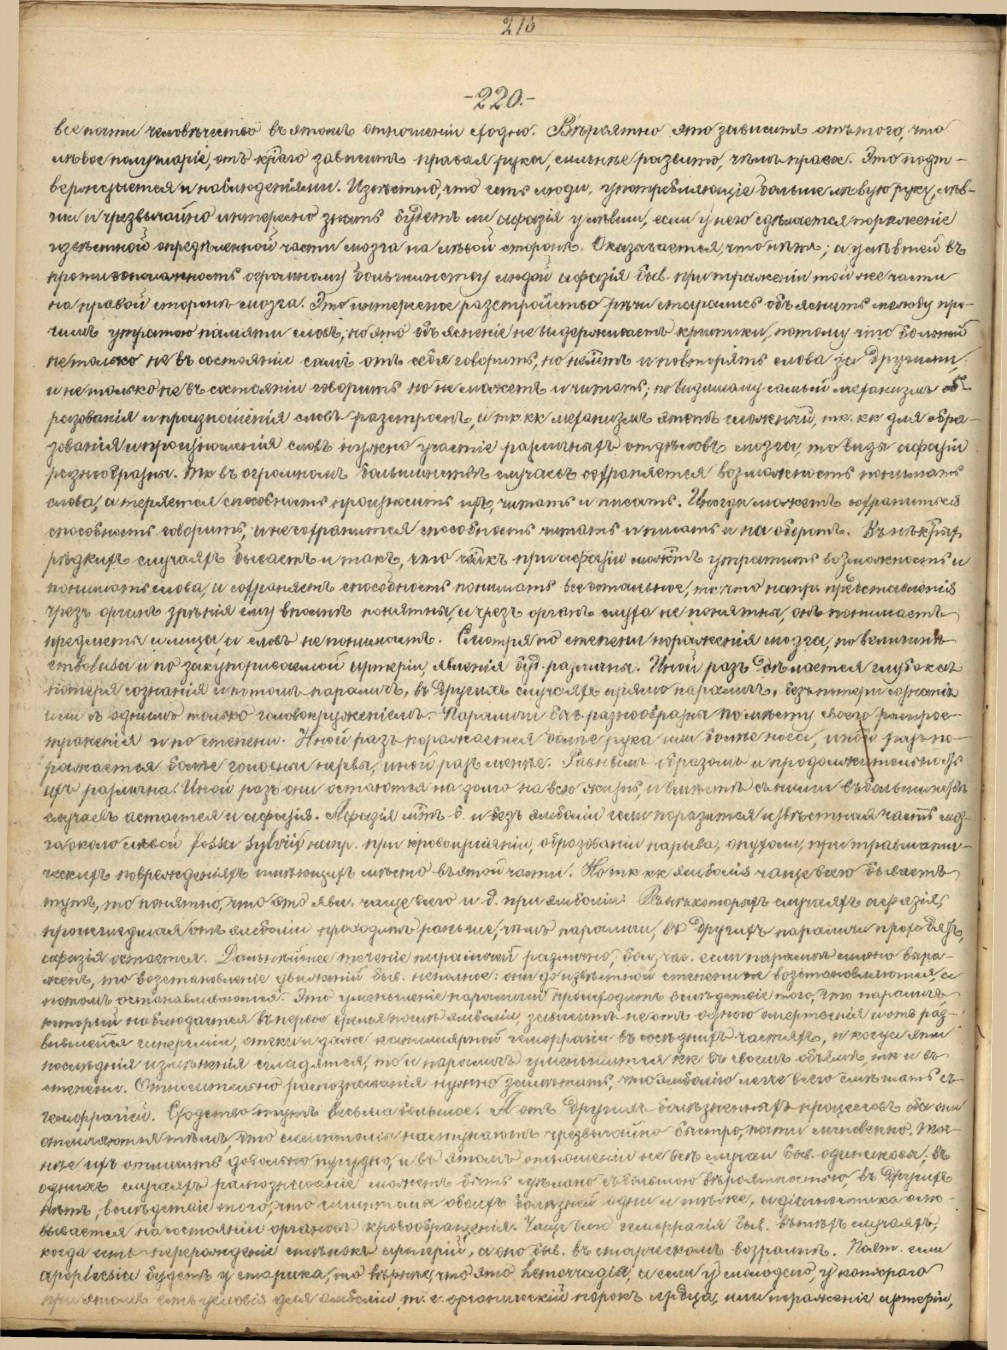 216
-220.-
все почти человѣчество въ этомъ отношеніи сходно. Вѣроятно это зависитъ отъ того, что
лѣвое полушаріе, отъ крго зависитъ правая рука, сильнѣе развито, чѣмъ правое. Это подт-
верждается и наблюденіями. Извѣстно, что есть люди, употребляющіе больше лѣвую руку, лѣв-
ши и чрезвычайно интересно знать будетъ ли афазія у лѣвши, если у него сдѣлается пораженіе
извѣстной опредѣленной части мозга на лѣвой сторонѣ. Оказывается, что нѣтъ; а у лѣвшей въ
противоположность огромному большинству людей афазія быв. при пораженіи той же части
на правой сторонѣ мозга. Это интересное разстройство рѣчи старались объяснить между про-
чимъ утратою памяти словъ; но это объясненіе не выдерживаетъ критики, потому что больной
не только не въ состояніи самъ отъ себя говорить, но не мжтъ и повторять слова за другими,
и не только не въ состояніи говорить но не можетъ и читать; по видимому самый механизмъ об-
разованія и произношенія словъ разстроенъ, и тк кк механизмъ этотъ сложный, тк. кк для обра-
зованія и произношенія словъ нужно участіе различныхъ отдѣловъ мозга, то видъ афазіи
разнообразны. Тк въ огромномъ большинствѣ случаевъ сохраняется возможность понимать
слова, а теряется способность произносить ихъ, читать и писать. Иногда можетъ сохраниться
способность говорить, и не сохранится способность читать и писать и на оборотъ. Въ нѣкрыхъ
рѣдкихъ случаяхъ бываетъ и такъ, что члкъ при афазіи можтъ утратить возможность и
понимать слова, и сохраняетъ способность понимать все остальное, то что напр. представленія
чрезъ органъ зрѣнія ему вполнѣ понятны, и чрезъ органъ слуха не понятны, онъ понимаетъ
предметы и лица, а словъ не понимаетъ. Смотря по степени пораженія мозга, по величинѣ
и по закупориваемой артеріи, явленія буд. различны. Иной разъ дѣлается глубокая
потеря сознанія и потомъ параличъ, въ другихъ случаяхъ прямо параличъ, безъ потери сознанія
или съ однимъ только головокруженіемъ. Параличи быв. разнообразны по мѣсту своего распрос-
траненія и по степени. Иной разъ поражается болѣе рука или болѣе нога, иной разъ по-
ражается болѣе головные нервы, иной разъ менѣе. Равнымъ образомъ и продолжительность
ихъ различна. Иной разъ они остаются на долго на всю жизнь, и вмѣстѣ съ ними въ большинствѣ
случаевъ остается и афазія. Афазія мжтъ б. и безъ эмболіи если поразится извѣстная часть моз-
га около лѣвой fossa Sylvii напр. при кровоизліяніи, образованіи нарыва, опухоли, при травмати-
ческихъ поврежденіяхъ имѣющихъ мѣсто въ этой части. Но тк кк эмболія чаще всего бываетъ
тутъ, то понятно, что это явл. чаще всего и б. при эмболіи. Въ нѣкоторыхъ случаяхъ афазія,
происшедшая отъ эмболіи проходитъ раньше, чѣмъ параличи, въ другихъ параличи проходятъ,
афазія остается. Дальнѣйшее теченіе параличей различно, бол. час. если параличъ сильно выра-
женъ, то возстановленіе движеній быв. неполное: они до извѣстной степени возстановляются, а
потомъ останавливаются. Это уменьшеніе параличей происходитъ вслѣдствіе того, что параличъ,
который наблюдается въ первое время послѣ эмболіи, зависитъ не отъ одного омертвенія и отъ раз-
вившейся гипереміи, отека и даже капиллярной геморрагіи въ сосѣднихъ частяхъ, и когда эти
послѣднія измѣненія сгладятся, то и параличъ уменьшится кк въ своемъ объемѣ, тк и въ
степени. Относительно распознаванія нужно замѣтить, что эмболію легче всего смѣшать съ
геморрагіей. Сходство тутъ весьма большое. А отъ другихъ болѣзненныхъ процессовъ оба они
отличаются тѣмъ, что симптомы наступаютъ чрезвычайно быстро, почти мгновенно.
ихъ отличить довольно трудно, и въ этомъ отношеніи не всѣ случаи быв. одинаковы; въ
однихъ случаяхъ распознаваніе можетъ быть сдѣлано съ большою вѣроятностью, въ другихъ
нѣтъ, вслѣдствіе того, что симптомы обѣихъ болѣзней одни и тѣ же, и діагностика осно-
вывается на состояніи органовъ кровообращенія. Чаще всего геморрагія быв. въ тѣхъ случаяхъ,
когда есть перерожденіе стѣнокъ артерій, а оно быв. въ старческомъ возрастѣ. Поэт. если
apoplexia будетъ у старика, то вѣрнѣе, что это hemorragia, а если у молодого, у котораго
при этомъ есть условія для эмболіи, т. е. органическій порокъ сердца, или пораженіе артеріи,